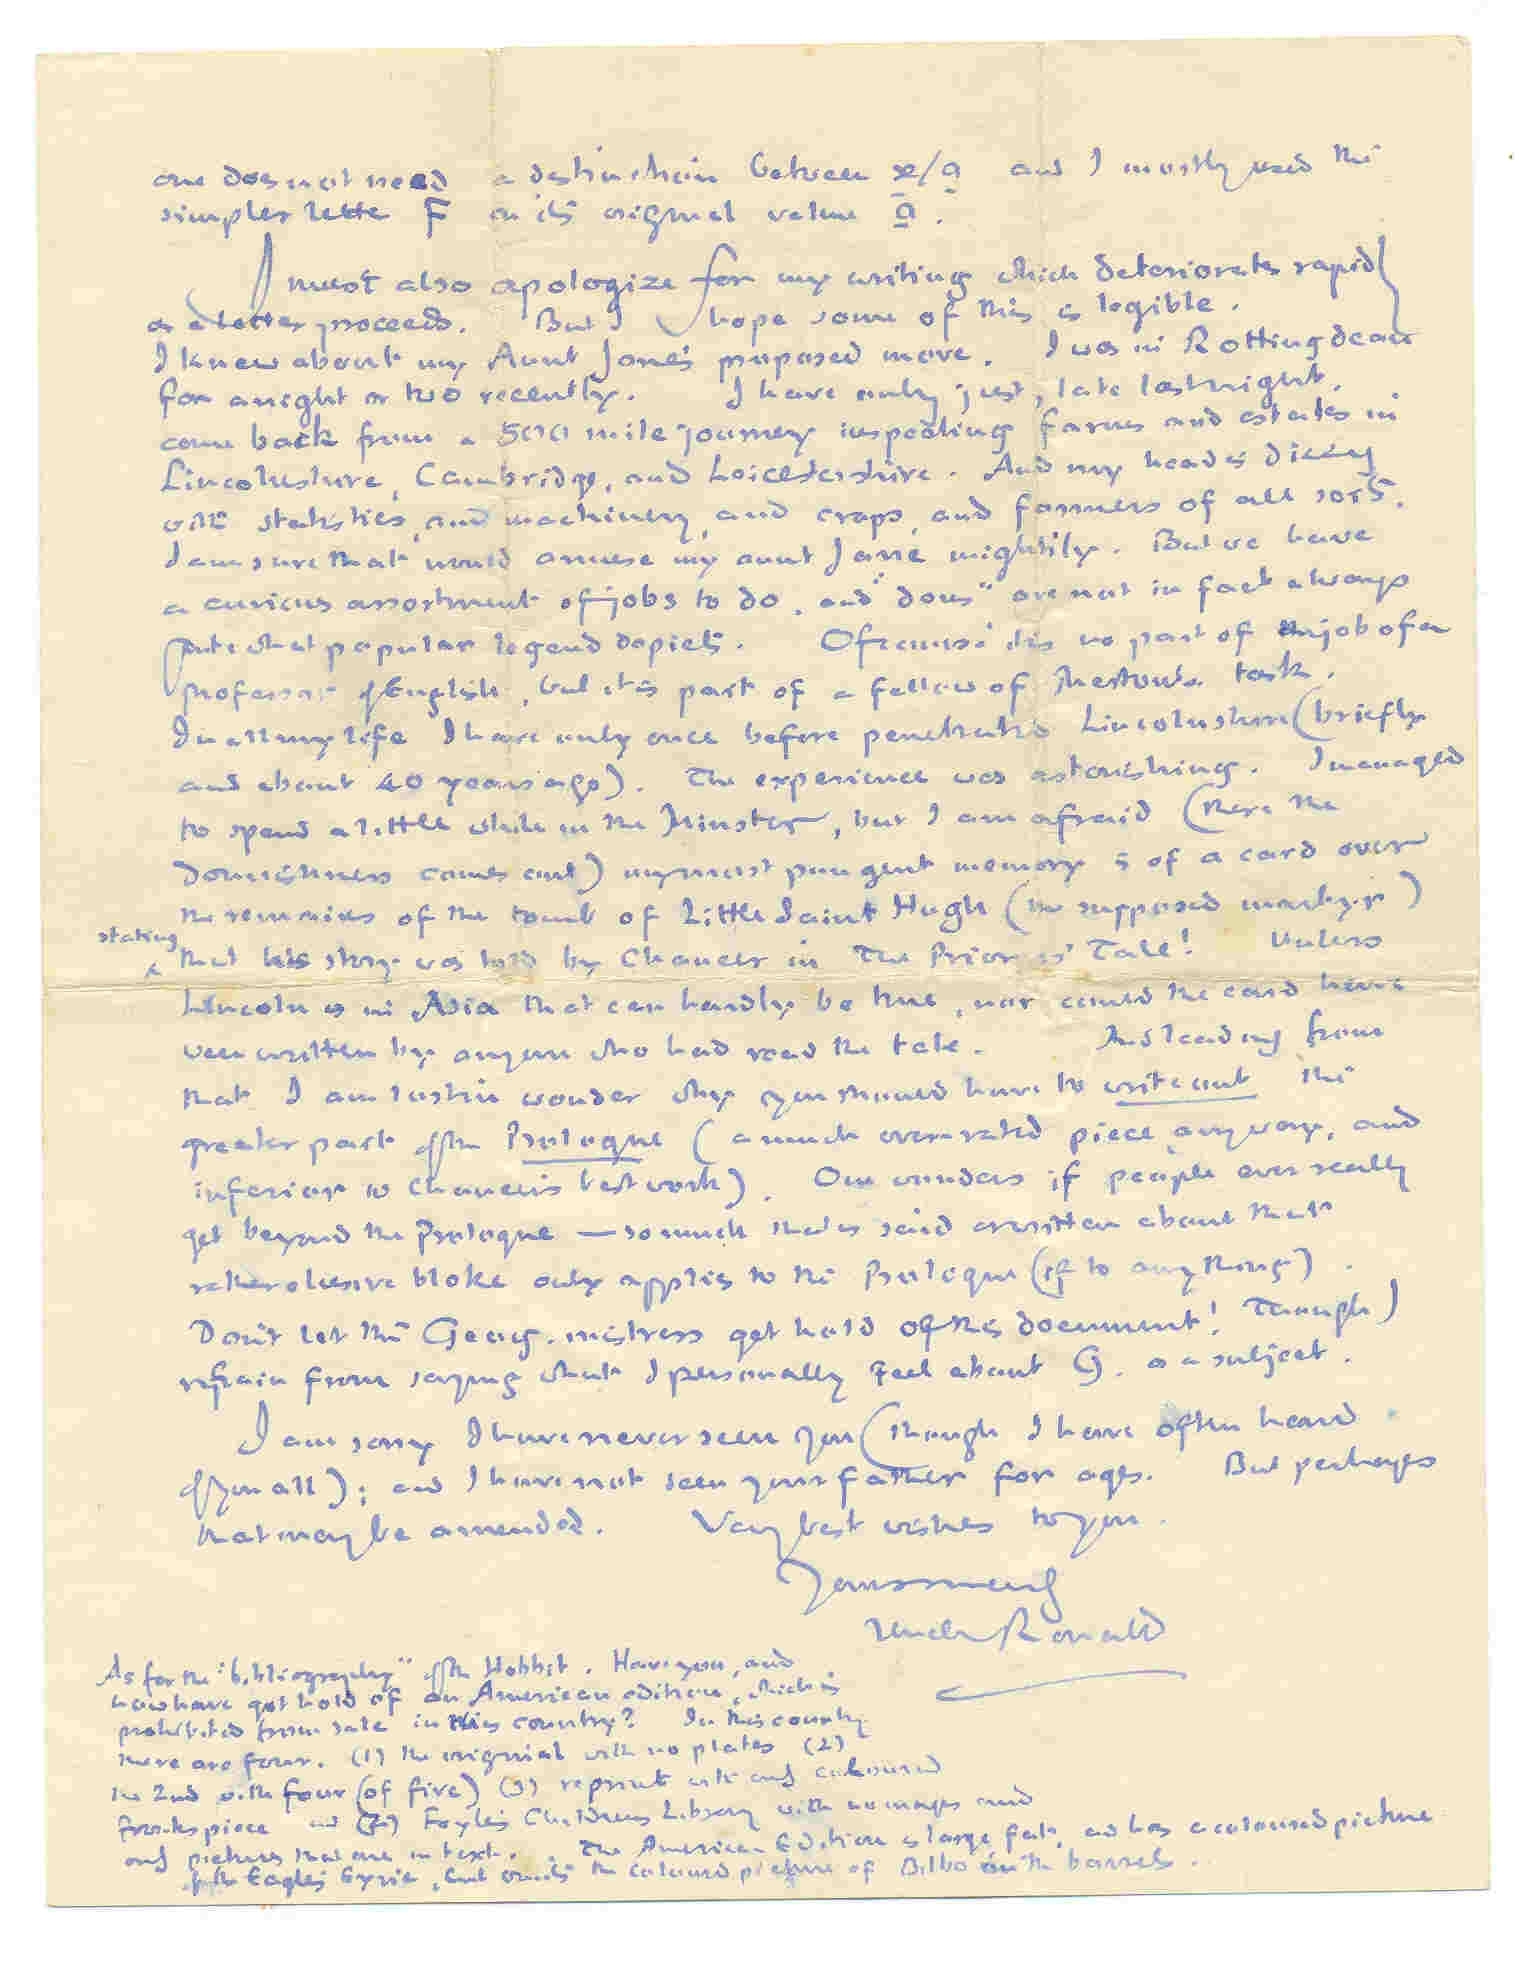 one does not need a distinction between æ/a and I mostly used the
simpler letter F in its original value a.
I must also apologize for my writing which deteriorates rapidly
as a letter proceeds. But I hope some of this is legible.
I knew about my Aunt Jane's proposed move. I was in Rottingdean
for a night or two recently. I have only just, late last night,
come back from a 500 mile journey inspecting farms and estates in
Lincolnshire, Cambridge, and Leicestershire. And my head is dizzy
with statistics, and machinery, and crops, and farmers of all sorts.
I am sure that would amuse my aunt Jane mightily. But we have
a curious assortment of jobs to do, and "dons" are not in fact always
quite what popular legend depicts. Of course it is no part of job of a
professor of English, but it is part of a fellow of Merton's task.
In all my life I have only once before penetrated Lincolnshire (briefly
and about 40 years ago). The experience was astonishing. I managed
to spend a little while in the Minster, but I am afraid (here the
donnishness comes out) my most pungent memory is of a card over
the remains of the tomb of Little Saint Hugh (the supposed martyr)
stating
that his story was told by Chaucer in The Prioress' Tale! Unless
Lincoln is in Asia that can hardly be true, nor could the card have
been written by anyone who had read the tale. And leading from
that I am lost in wonder why you should have to write out the
greater part of the Prologue (a much overrated piece anyway, and
inferior to Chaucer's best work). One wonders if people ever really
get beyond the Prologue — so much that is said or written about that
rather elusive bloke only applies to the Prologue (if to anything).
Don't let the Geog. mistress get hold of this document! Though I
refrain from saying what I personally feel about G. as a subject.
I am sorry I have never seen you (though I have often heard
of you all); and I have not seen your father for ages. But perhaps
that may be amended. Very best wishes to you.
Yours sincerely
Uncle Ronald
As for the "bibliography" of the Hobbit. Have you, and
how have got hold of an American edition, which is
prohibited from sale in this country? In this country
there are four. (1) the original with no plates (2)
the 2nd with four (of five) (3) reprint with only coloured
frontispiece and (4) Foyle's Childrens Library with no maps and
only pictures that are in text. The American Edition is large, fat, and has a coloured picture
of the Eagles' Eyrie, but omits the coloured picture of Bilbo on the barrels.